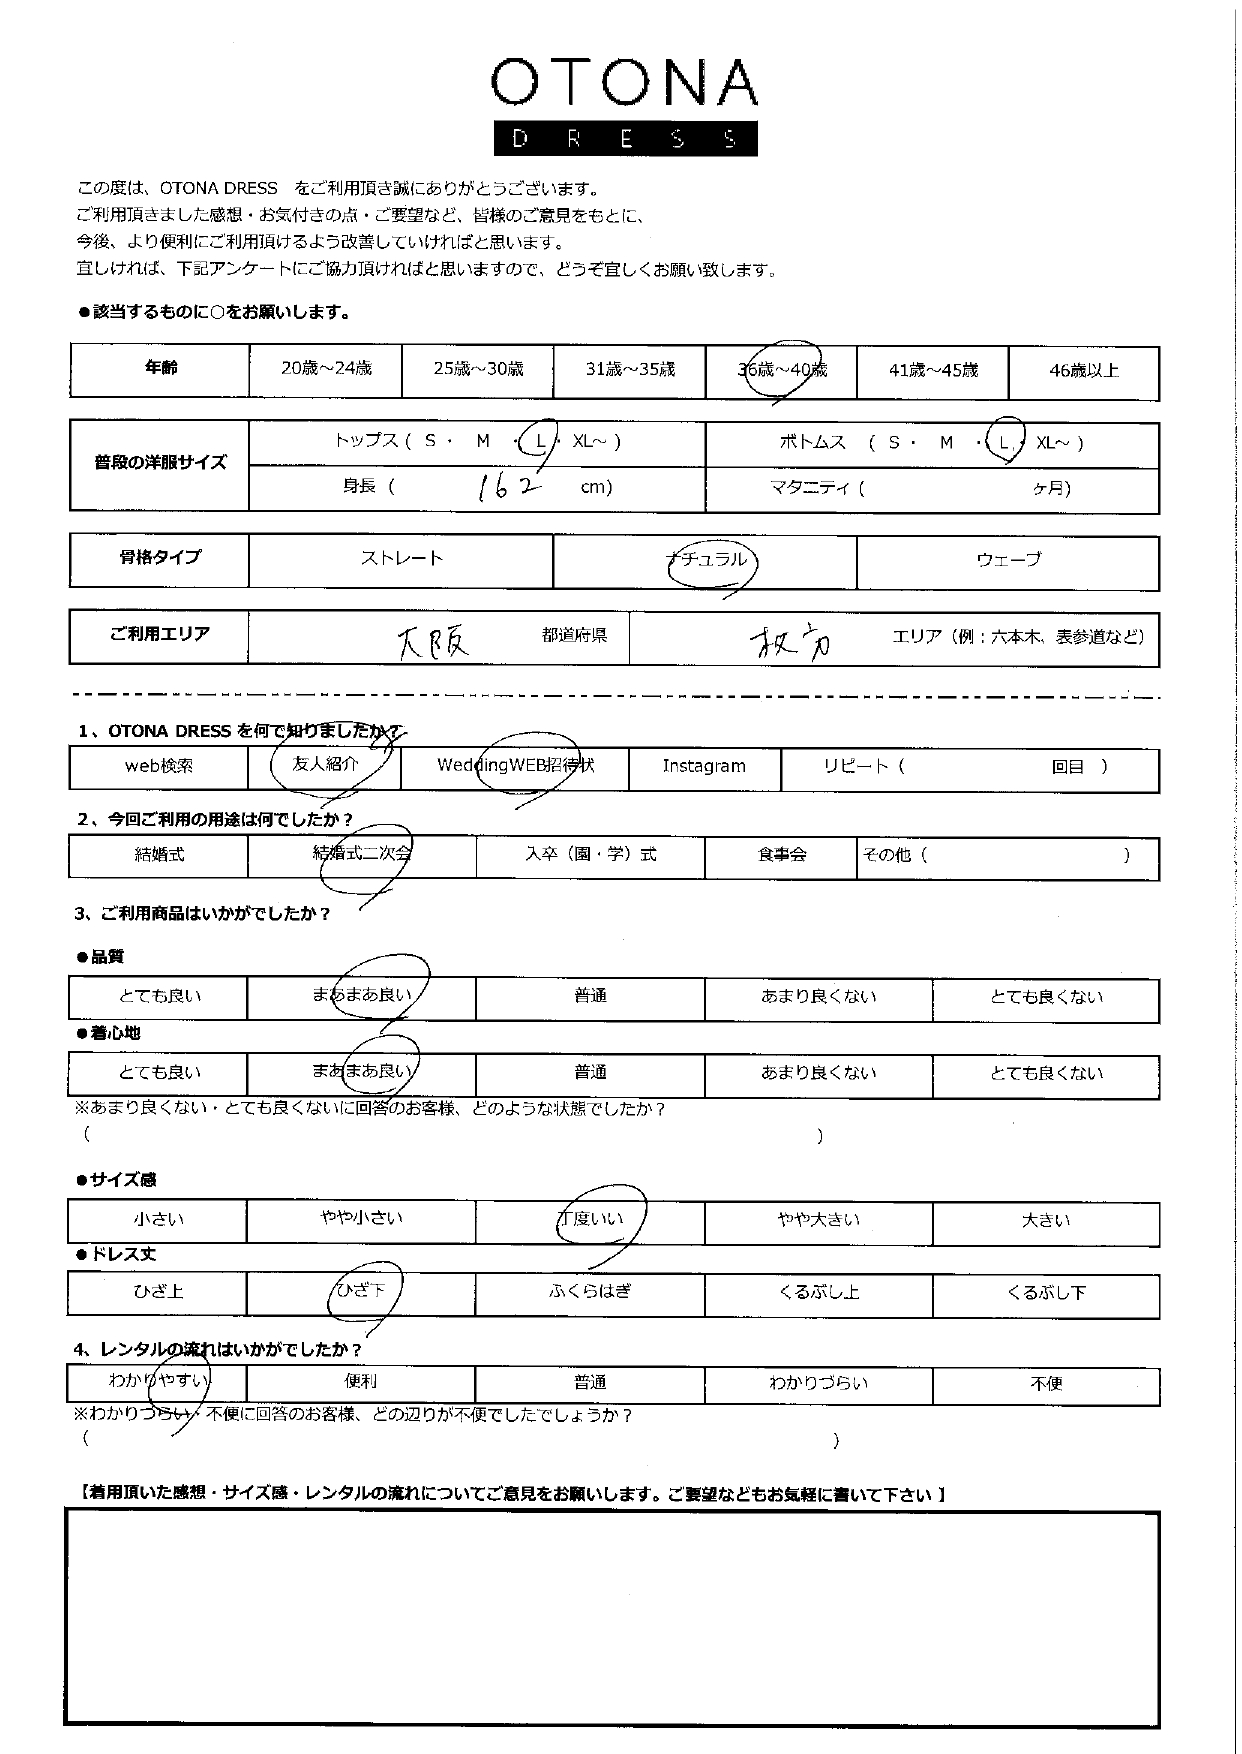 OTONA
DRESS
この度は、OTONA DRESS　をご利用頂き誠にありがとうございます。
ご利用頂きました感想・お気付きの点・ご要望など、皆様のご意見をもとに、
今後、より便利にご利用頂けるよう改善していければと思います。
宜しければ、下記アンケートにご協力頂ければと思いますので、どうぞ宜しくお願い致します。
●該当するものに○をお願いします。
年齢 20歳～24歳 25歳～30歳 31歳～35歳 36歳～40歳 41歳～45歳 46歳以上
普段の洋服サイズ トップス ( S ・ M ・ L ・ XL～ ) ボトムス ( S ・ M ・ L ・ XL～ )
身長 ( 162 cm) マタニティ ( ヶ月)
骨格タイプ ストレート ナチュラル ウェーブ
ご利用エリア 大阪 都道府県 枚方 エリア（例：六本木、表参道など）
1、OTONA DRESS を何で知りましたか？
web検索 友人紹介 WeddingWEB招待状 Instagram リピート ( 回目 )
2、今回ご利用の用途は何でしたか？
結婚式 結婚式二次会 入卒（園・学）式 食事会 その他 ( )
3、ご利用商品はいかがでしたか？
●品質
とても良い まあまあ良い 普通 あまり良くない とても良くない
●着心地
とても良い まあまあ良い 普通 あまり良くない とても良くない
※あまり良くない・とても良くないに回答のお客様、どのような状態でしたか？
( )
●サイズ感
小さい やや小さい 丁度いい やや大きい 大きい
●ドレス丈
ひざ上 ひざ下 ふくらはぎ くるぶし上 くるぶし下
4、レンタルの流れはいかがでしたか？
わかりやすい 便利 普通 わかりづらい 不便
※わかりづらい・不便に回答のお客様、どの辺りが不便でしたでしょうか？
( )
【着用頂いた感想・サイズ感・レンタルの流れについてご意見をお願いします。ご要望などもお気軽に書いて下さい 】